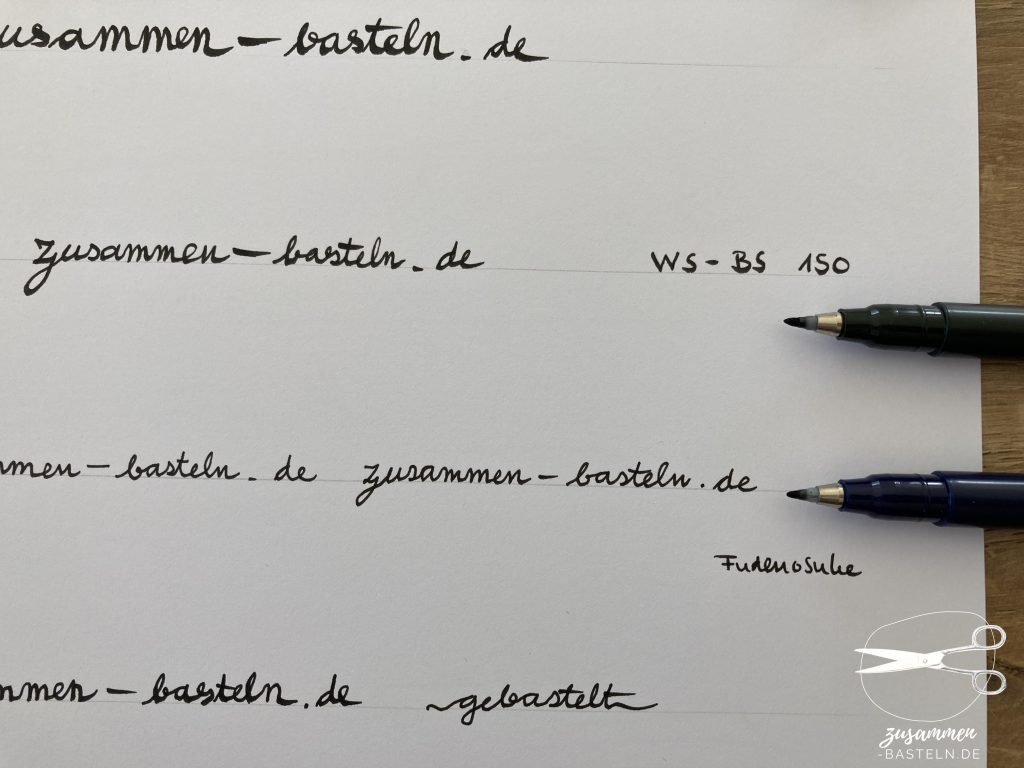 usammen - basteln.de
zusammen - basteln.de WS - BS 150
mmen - basteln.de zusammen - basteln.de
Fudenosuke
mmen - basteln.de ~gebastelt~
zusammen
-BASTELN.DE